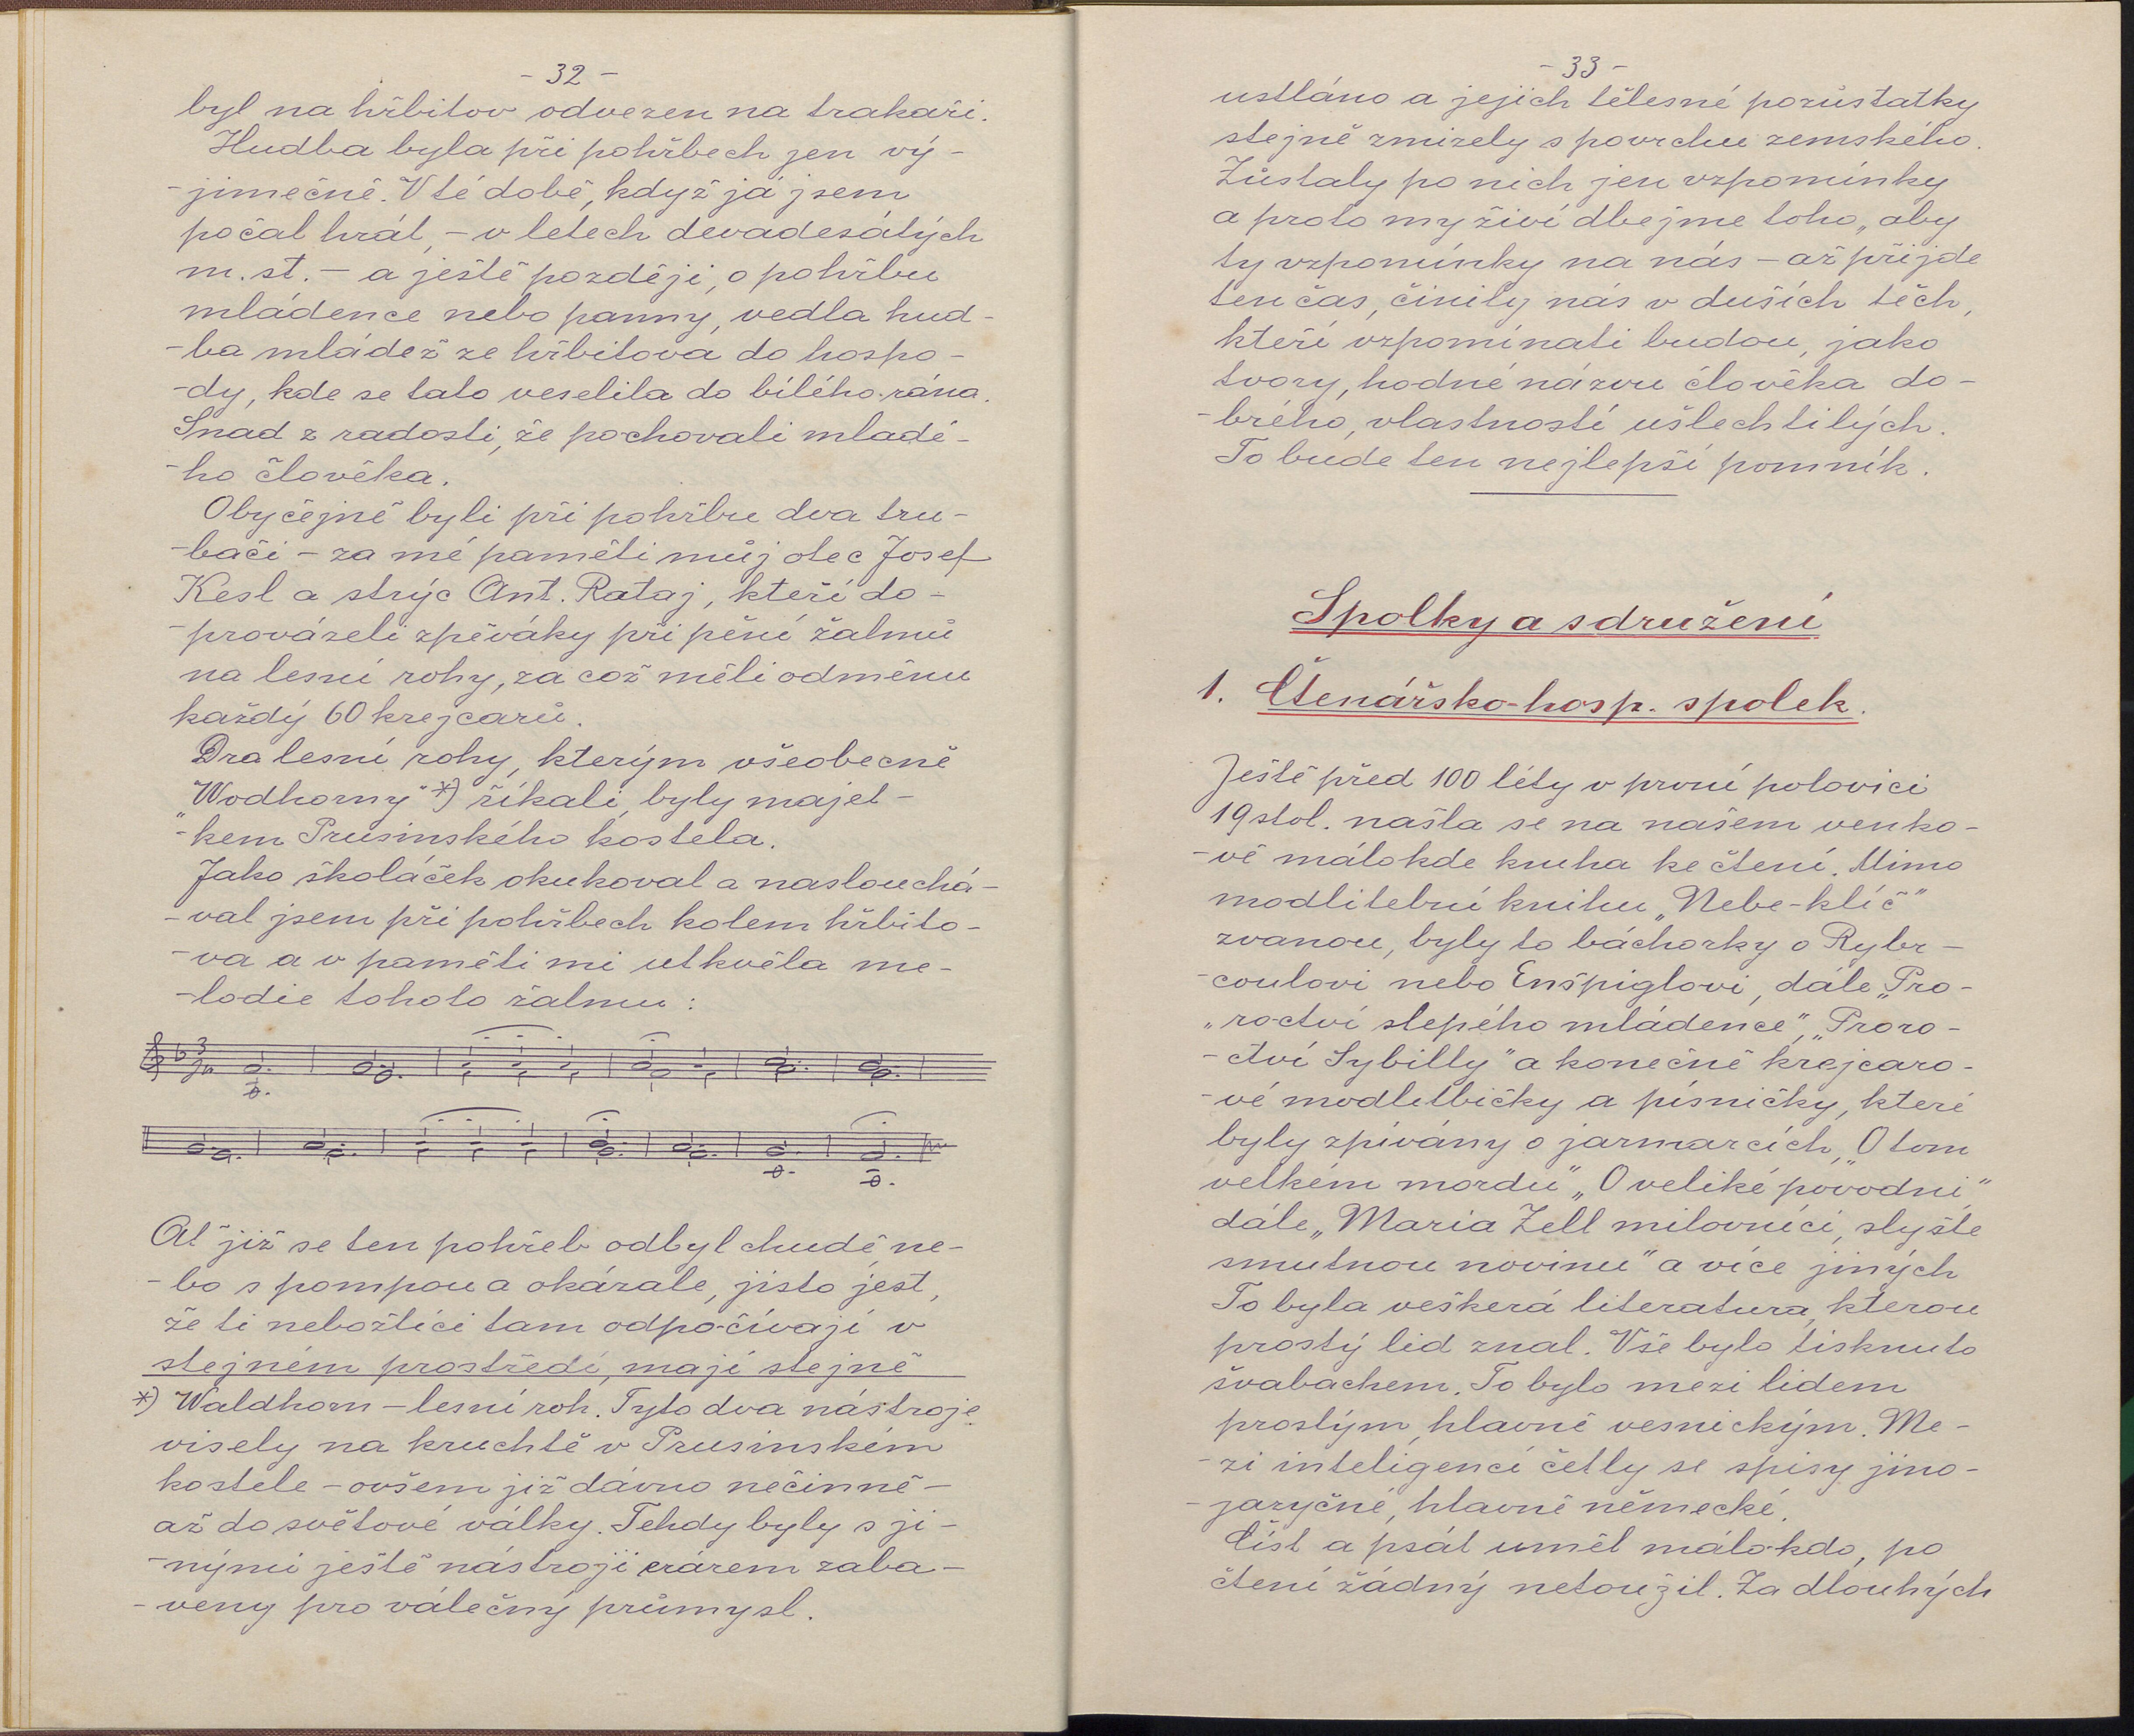 - 32 -
byl na hřbitov odvezen na trakaři.
Hudba byla při pohřbech jen vý-
-jimečně. V té době, když já jsem
počal hrát, - v letech devadesátých
m. st. - a ještě později, o pohřbu
mládence nebo panny, vedla hud-
-ba mládež ze hřbitova do hospo-
-dy, kde se tato veselila do bílého rána.
Snad z radosti, že pochovali mladé-
-ho člověka.
Obyčejně byli při pohřbu dva tru-
-bači - za mé paměti můj otec Josef
Kesl a strýc Ant. Rataj, kteří do-
-provázeli zpěváky při pění žalmů
na lesní rohy, za což měli odměnu
každý 60 krejcarů.
Dva lesní rohy, kterým všeobecně
„Wodhorny" *) říkali, byly majet-
-kem Prusinského kostela.
Jako školáček okukoval a naslouchá-
-val jsem při pohřbech kolem hřbito-
-va a v paměti mi utkvěla me-
-lodie tohoto žalmu:
Ať již se ten pohřeb odbyl chudě, ne-
-bo s pompou a okázale, jisto jest,
že ti nebožtíci tam odpočívají v
stejném prostředí, mají stejně
*) Waldhorn - lesní roh. Tyto dva nástroje
visely na kruchtě v Prusinském
kostele - ovšem již dávno nečinně -
až do světové války. Tehdy byly s ji-
-nými ještě nástroji erárem zaba-
-veny pro válečný průmysl.
- 33 -
ustláno a jejich tělesné pozůstatky
stejně zmizely s povrchu zemského.
Zůstaly po nich jen vzpomínky
a proto my živí dbejme toho, aby
ty vzpomínky na nás - až přijde
ten čas, činily nás v duších těch,
kteří vzpomínati budou, jako
tvory, hodné názvu člověka do-
-brého, vlastností ušlechtilých.
To bude ten nejlepší pomník.
Spolky a sdružení
1. Čtenářsko-hosp. spolek.
Ještě před 100 léty v první polovici
19 stol. našla se na našem venko-
-vě málokde kniha ke čtení. Mimo
modlitební knihu „Nebe-klíč"
zvanou, byly to báchorky o Rybr-
-coulovi nebo Enšpiglovi, dále „Pro-
„roctví slepého mládence", „Proro-
-ctví Sybilly" a konečně krejcaro-
-vé modlitbičky a písničky, které
byly zpívány o jarmarcích, „O tom
velkém mordu" „O veliké povodni"
dále „Maria Zell milovníci, slyšte
smutnou novinu" a více jiných
To byla veškerá literatura, kterou
prostý lid znal. Vše bylo tisknuto
švabachem. To bylo mezi lidem
prostým, hlavně vesnickým. Me-
-zi inteligencí četly se spisy jino-
-jazyčné, hlavně německé.
Číst a psát uměl málokdo, po
čtení žádný netoužil. Za dlouhých